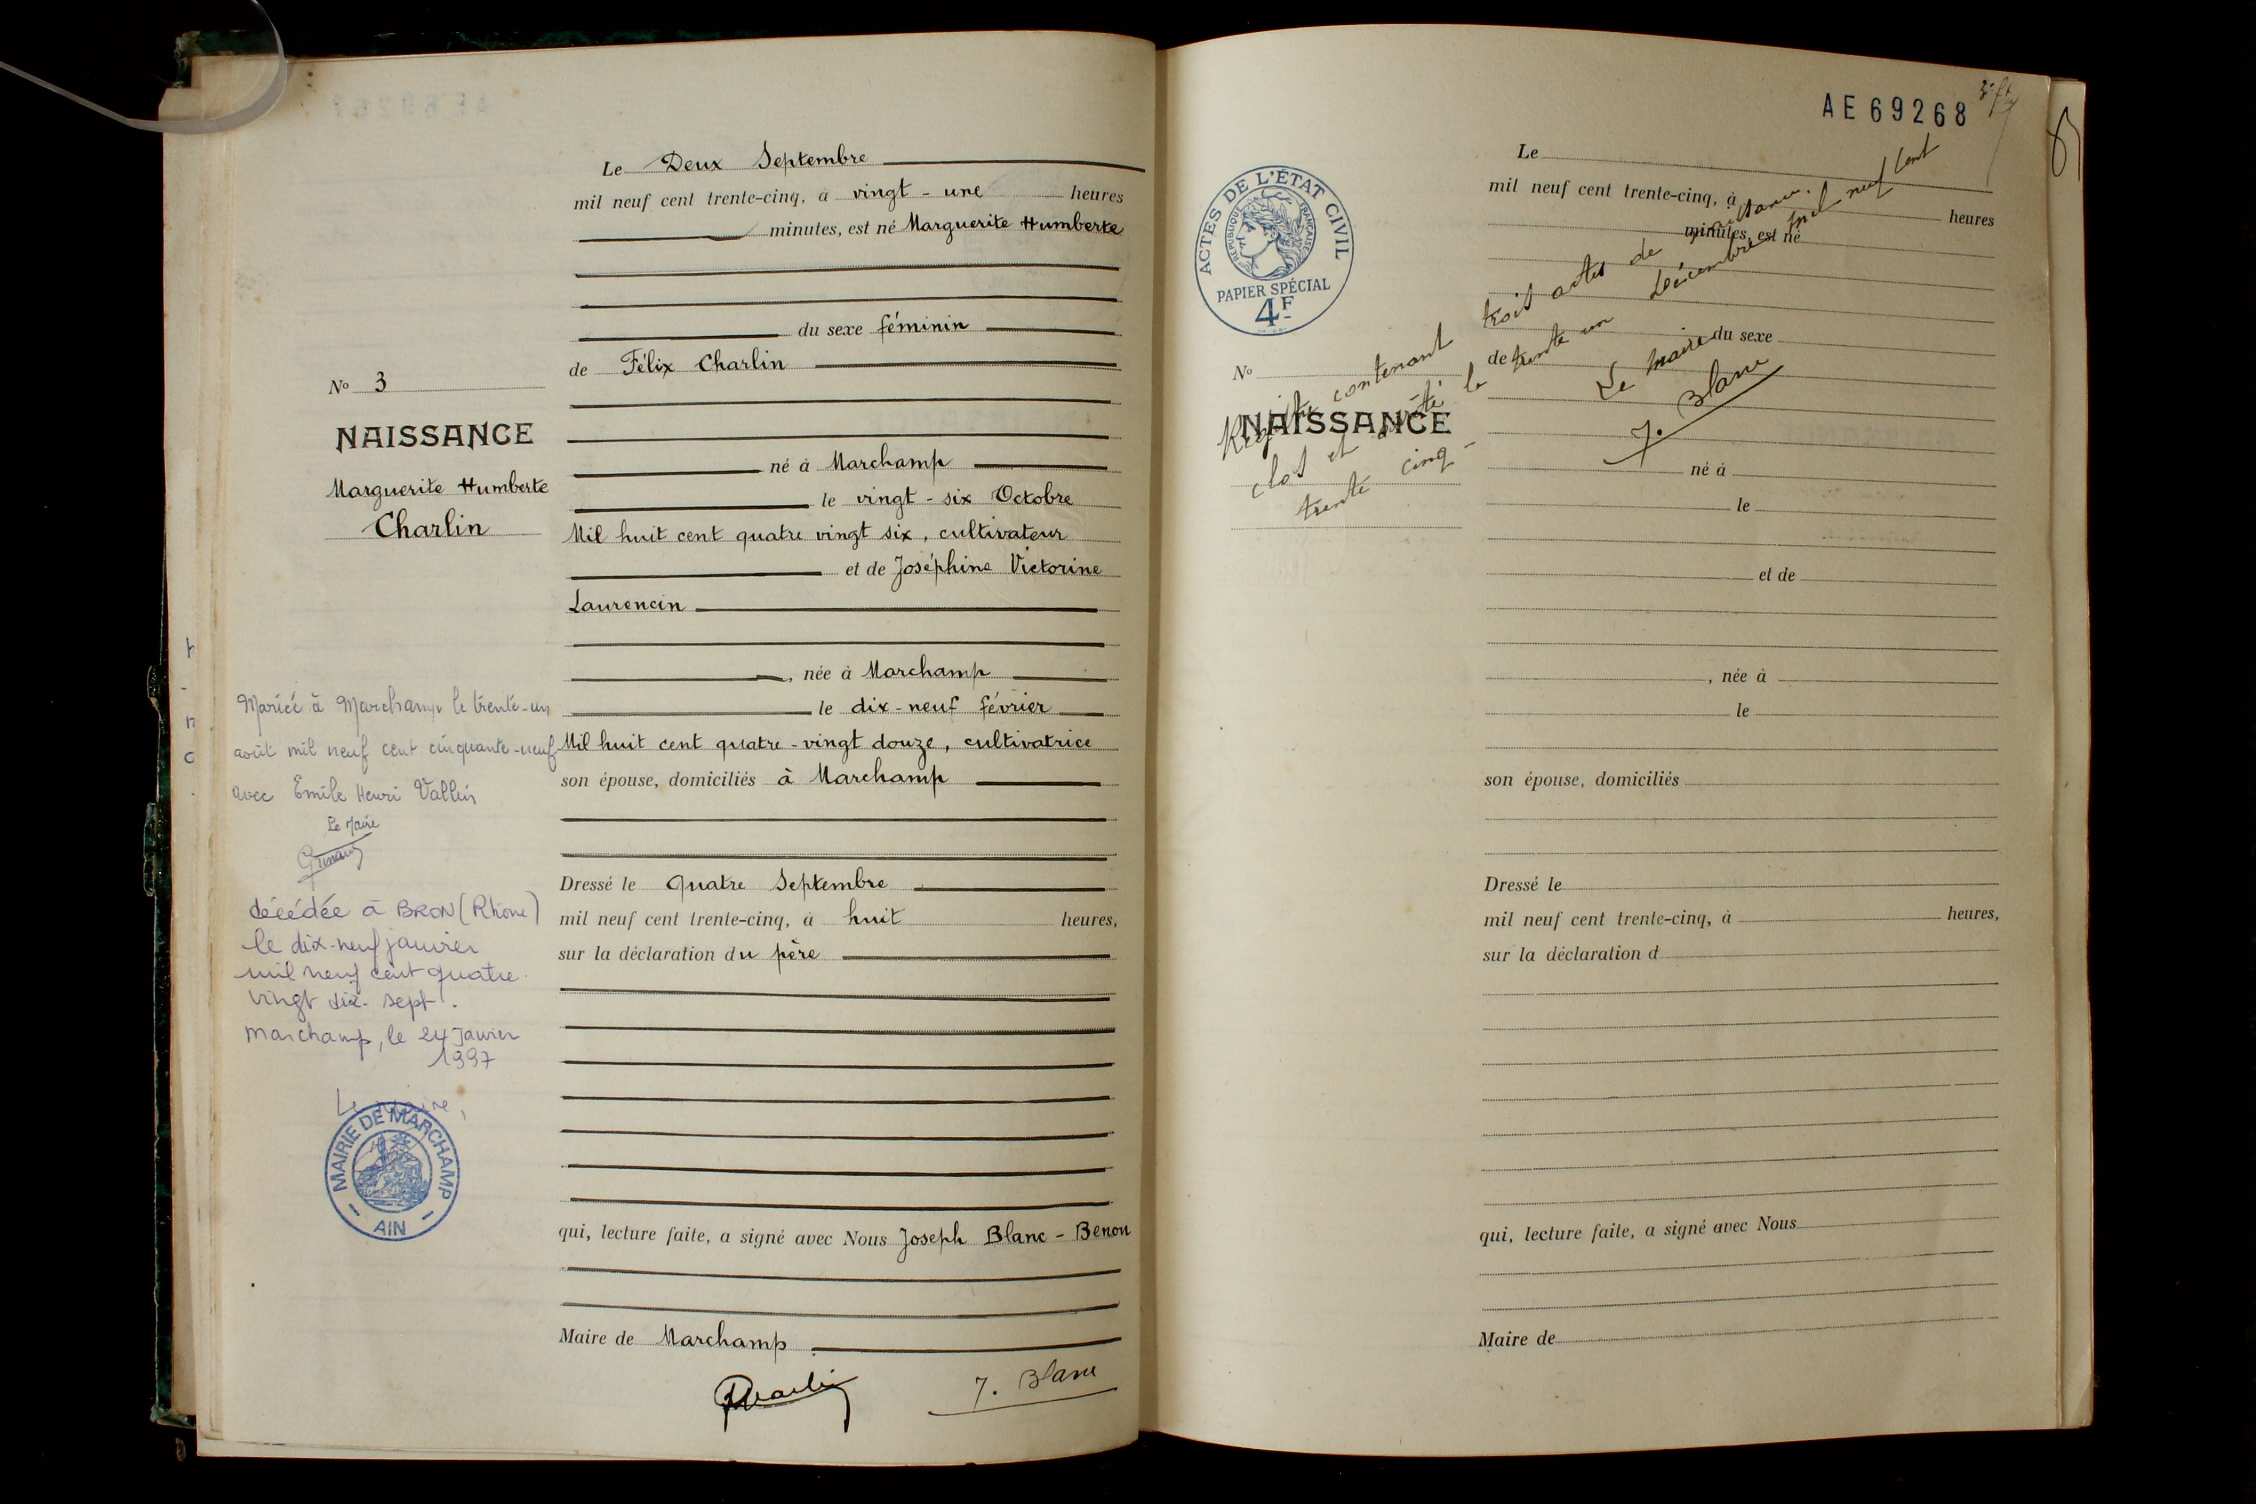 Le Deux Septembre
mil neuf cent trente-cinq, à vingt - une heures
minutes, est né Marguerite Humberte
du sexe féminin
de Félix Charlin
né à Marchamp
le vingt - six Octobre
Mil huit cent quatre vingt six, cultivateur
et de Joséphine Victorine
Laurencin
, née à Marchamp
le dix - neuf février
Mil huit cent quatre - vingt douze, cultivatrice
son épouse, domiciliés à Marchamp
Dressé le quatre Septembre
mil neuf cent trente-cinq, à huit heures,
sur la déclaration du père
qui, lecture faite, a signé avec Nous Joseph Blanc - Benon
Maire de Marchamp
J. Blanc
No 3
NAISSANCE
Marguerite Humberte
Charlin
Mariée à Marchamp le trente-un
août mil neuf cent cinquante-neuf
avec Emile Henri Vallin
Le Maire
décédée à BRON (Rhône)
le dix-neuf janvier
mil neuf cent quatre
vingt dix-sept.
Marchamp, le 24 Janvier
1997
Le Maire,
MAIRIE DE MARCHAMP
AIN
AE 69268
ACTES DE L'ÉTAT CIVIL
RÉPUBLIQUE FRANÇAISE
PAPIER SPÉCIAL
4F
No
NAISSANCE
Le
mil neuf cent trente-cinq, à heures
minutes, est né
du sexe
de
né à
le
et de
, née à
le
son épouse, domiciliés
Dressé le
mil neuf cent trente-cinq, à heures,
sur la déclaration d
qui, lecture faite, a signé avec Nous
Maire de
Registre contenant trois actes de naissance.
clos et arrêté le trente un Décembre mil neuf cent
trente cinq -
Le Maire
J. Blanc